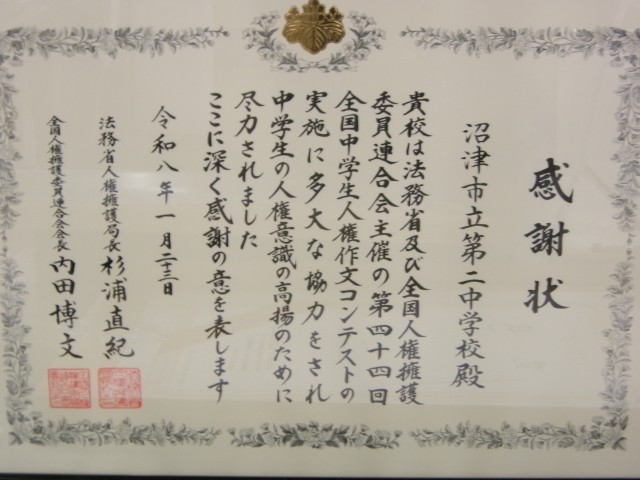 感謝状
沼津市立第二中学校殿
貴校は法務省及び全国人権擁護
委員連合会主催の第四十四回
全国中学生人権作文コンテストの
実施に多大な協力をされ
中学生の人権意識の高揚のために
尽力されました
ここに深く感謝の意を表します
令和八年一月二十三日
法務省人権擁護局長 杉浦直紀
全国人権擁護委員連合会会長 内田博文